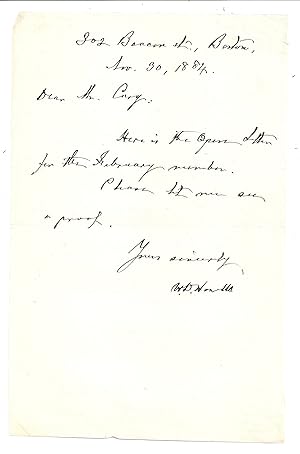 302 Beacon st., Boston,
Nov. 30, 1884.
Dear Mr. Carey:
Here is the Open Letter
for the February number.
Please let me see
a proof.
Yours sincerely,
W.D. Howells